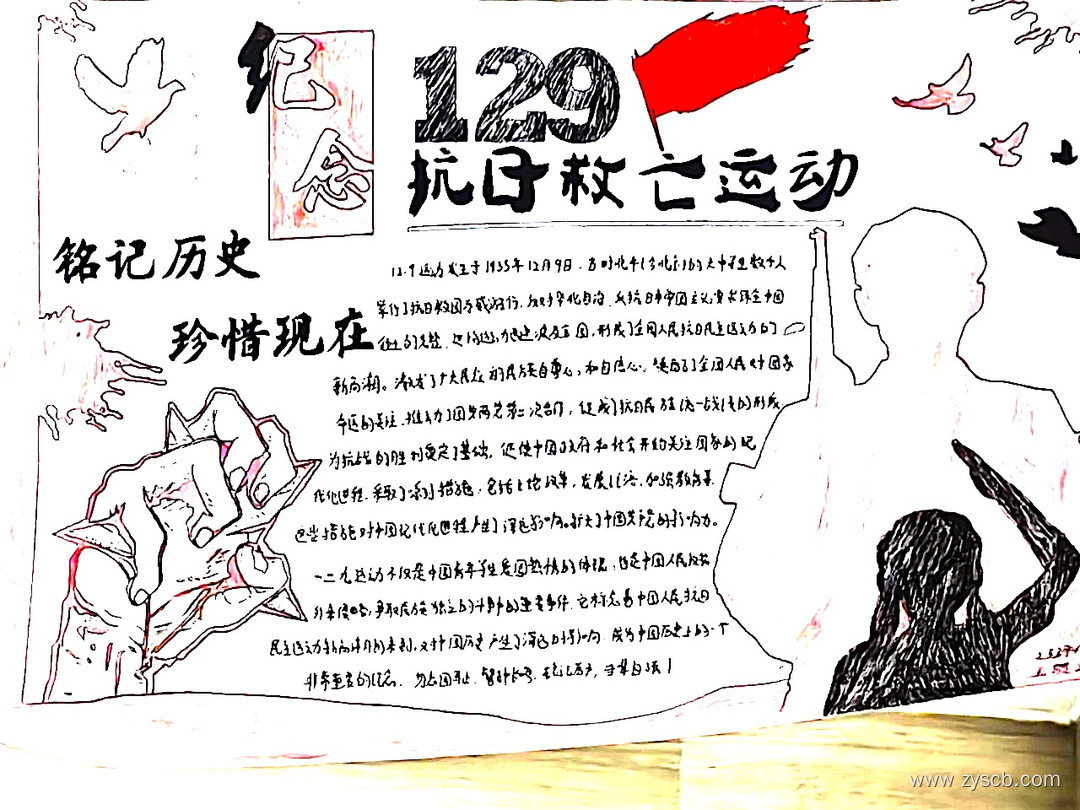 纪念
129
抗日救亡运动
铭记历史
珍惜现在
12.9运动发生于1935年12月9日.
举行了抗日救国示威游行,反对华北自治.
形成了全国人民抗日民主运动的
新高潮。激发了广大民众的民族自尊心,和自信心.
推动了国共两党第二次合作,促成了抗日民族统一战线的形成
为抗战的胜利奠定了基础,促使中国政府和社会开始关注国家的现
代化进程.采取了一系列措施,包括土地改革,发展经济,加强教育等
这些措施对中国现代化进程产生了深远影响.扩大了中国共产党的影响力.
一二九运动不仅是中国青年学生爱国热情的体现,也是中国人民反抗
外来侵略,争取民族独立的斗争的重要事件.它标志着中国人民抗日
民主运动新高潮的来到,对中国历史产生了深远的影响,成为中国历史上的一个
非常重要的纪念.
www.zyscb.com